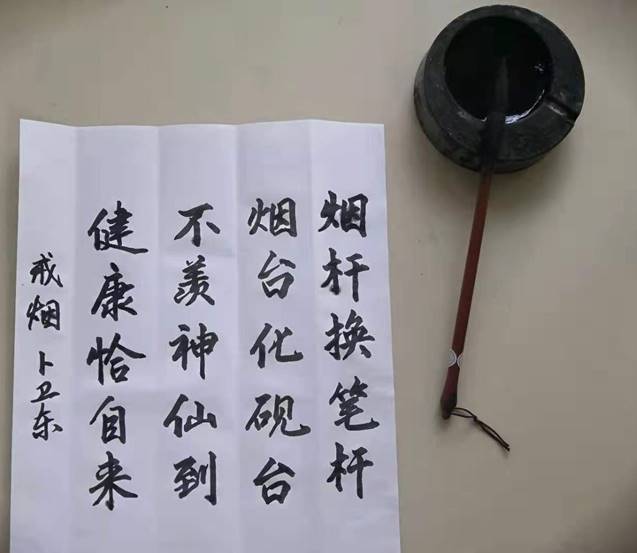 烟杆换笔杆
烟台化砚台
不羡神仙到
健康恰自来
戒烟 卜卫东